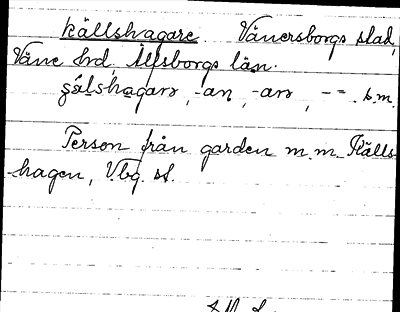 källshagare Vänersborgs stad,
Väne hrd. Älfsborgs län.
-an, -arə, -=. s.m.
Person från garden m.m. Källs-
hagen, Vbg. st.